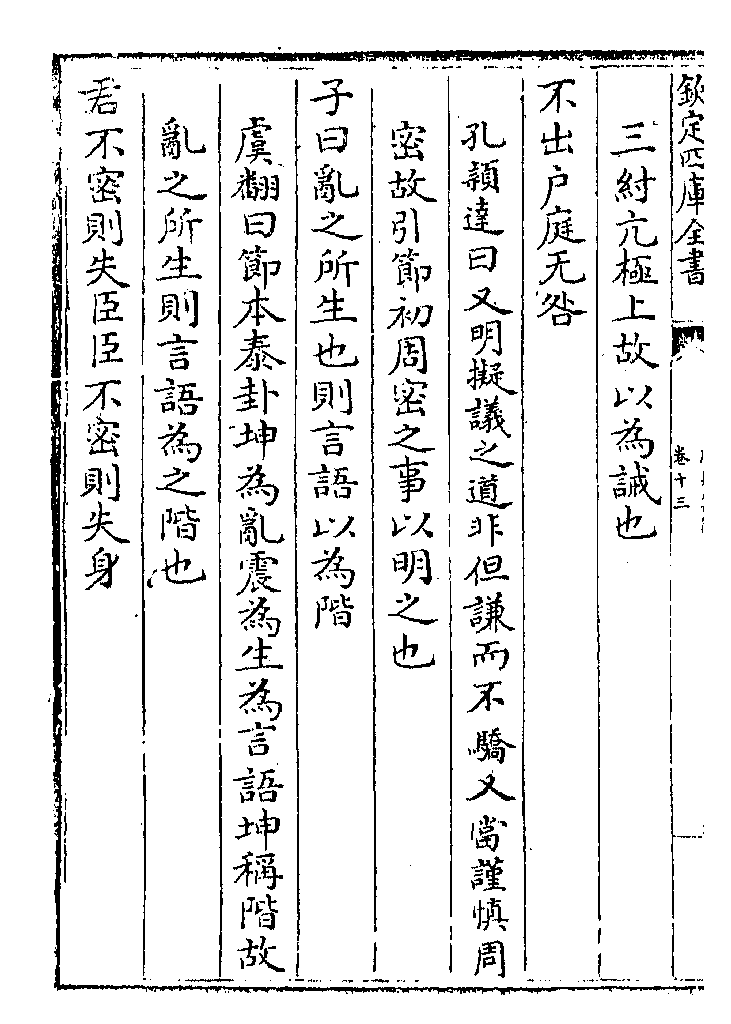 欽定四庫全書
卷十三
三紂亢極上故以為誡也
不出户庭无咎
孔穎達曰又明擬議之道非但謙而不驕又當謹慎周
密故引節初周密之事以明之也
子曰亂之所生也則言語以為階
虞翻曰節本泰卦坤為亂震為生為言語坤稱階故
亂之所生則言語為之階也
君不密則失臣臣不密則失身